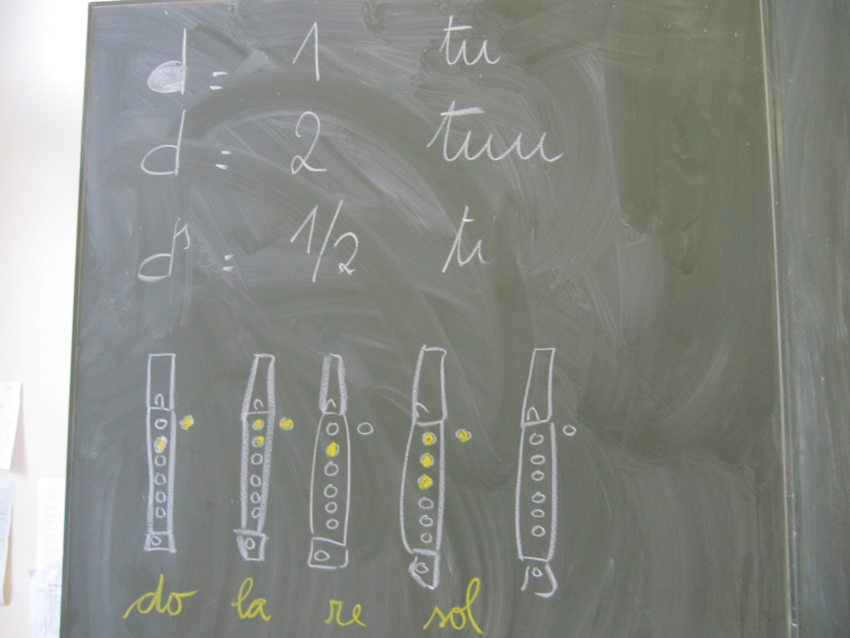 d = 1 tu
d = 2 tuu
d = 1/2 ti
do la re sol